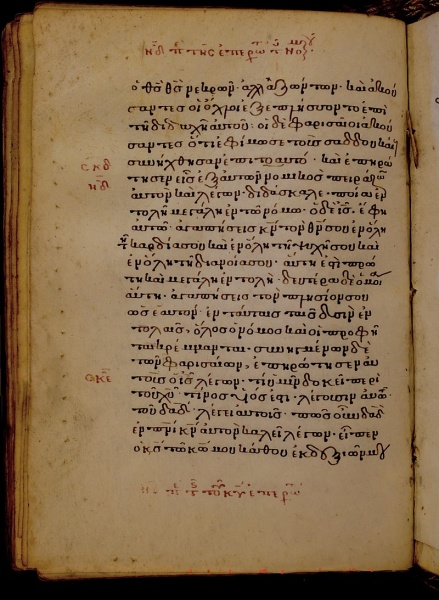 τῆς
ὁ θς θς νεκρῶν· ἀλλὰ ζώντων· καὶ ἀκού
σαντες οἱ ὄχλοι ἐξεπλήσσοντο ἐπὶ
τῆ διδαχῆ αὐτοῦ· οἱ δὲ φαρισαῖοι ἀκού
σαντες ὅτι ἐφίμωσε τοὺς σαδδουκαί
συνήχθησαν ἐπὶ τὸ αὐτό· καὶ ἐπηρώ
τησεν εἷς ἐξ αὐτῶν νομικὸς πειράζων
αὐτὸν καὶ λέγων· διδάσκαλε· ποία ἐν
τολὴ μεγάλη ἐν τῶ νόμω· ὁ δὲ ις ἔφη
αὐτῶ· ἀγαπήσεις κν τὸν θν σου ἐν ὅλη
τῆ καρδία σου καὶ ἐν ὅλη τῆ ψυχῆ σου καὶ
ἐν ὅλη τῆ διανοία σου· αὕτη ἐστὶ πρώ
τη καὶ μεγάλη ἐντολή· δευτέρα δὲ ὁμοία
αὕτη· ἀγαπήσεις τὸν πλησίον σου
ὡς ἑαυτόν· ἐν ταύταις ταῖς δυσὶν ἐν
τολαῖς, ὅλος ὁ νόμος καὶ οἱ προφῆ
ται κρέμανται· συνηγμένων δὲ
τῶν φαρισαίων, ἐπηρώτησεν αὐ
τοὺς ὁ ις λέγων· τί ὑμῖν δοκεῖ περὶ
τοῦ χυ· τίνος υἱός ἐστι· λέγουσιν αὐτῶ·
τοῦ δαδ· λέγει αὐτοῖς· πῶς οὖν δαδ
ἐν πνι κν αὐτὸν καλεῖ λέγων· εἶπεν
ὁ κς τῶ κω μου κάθου ἐκ δεξιῶν μου